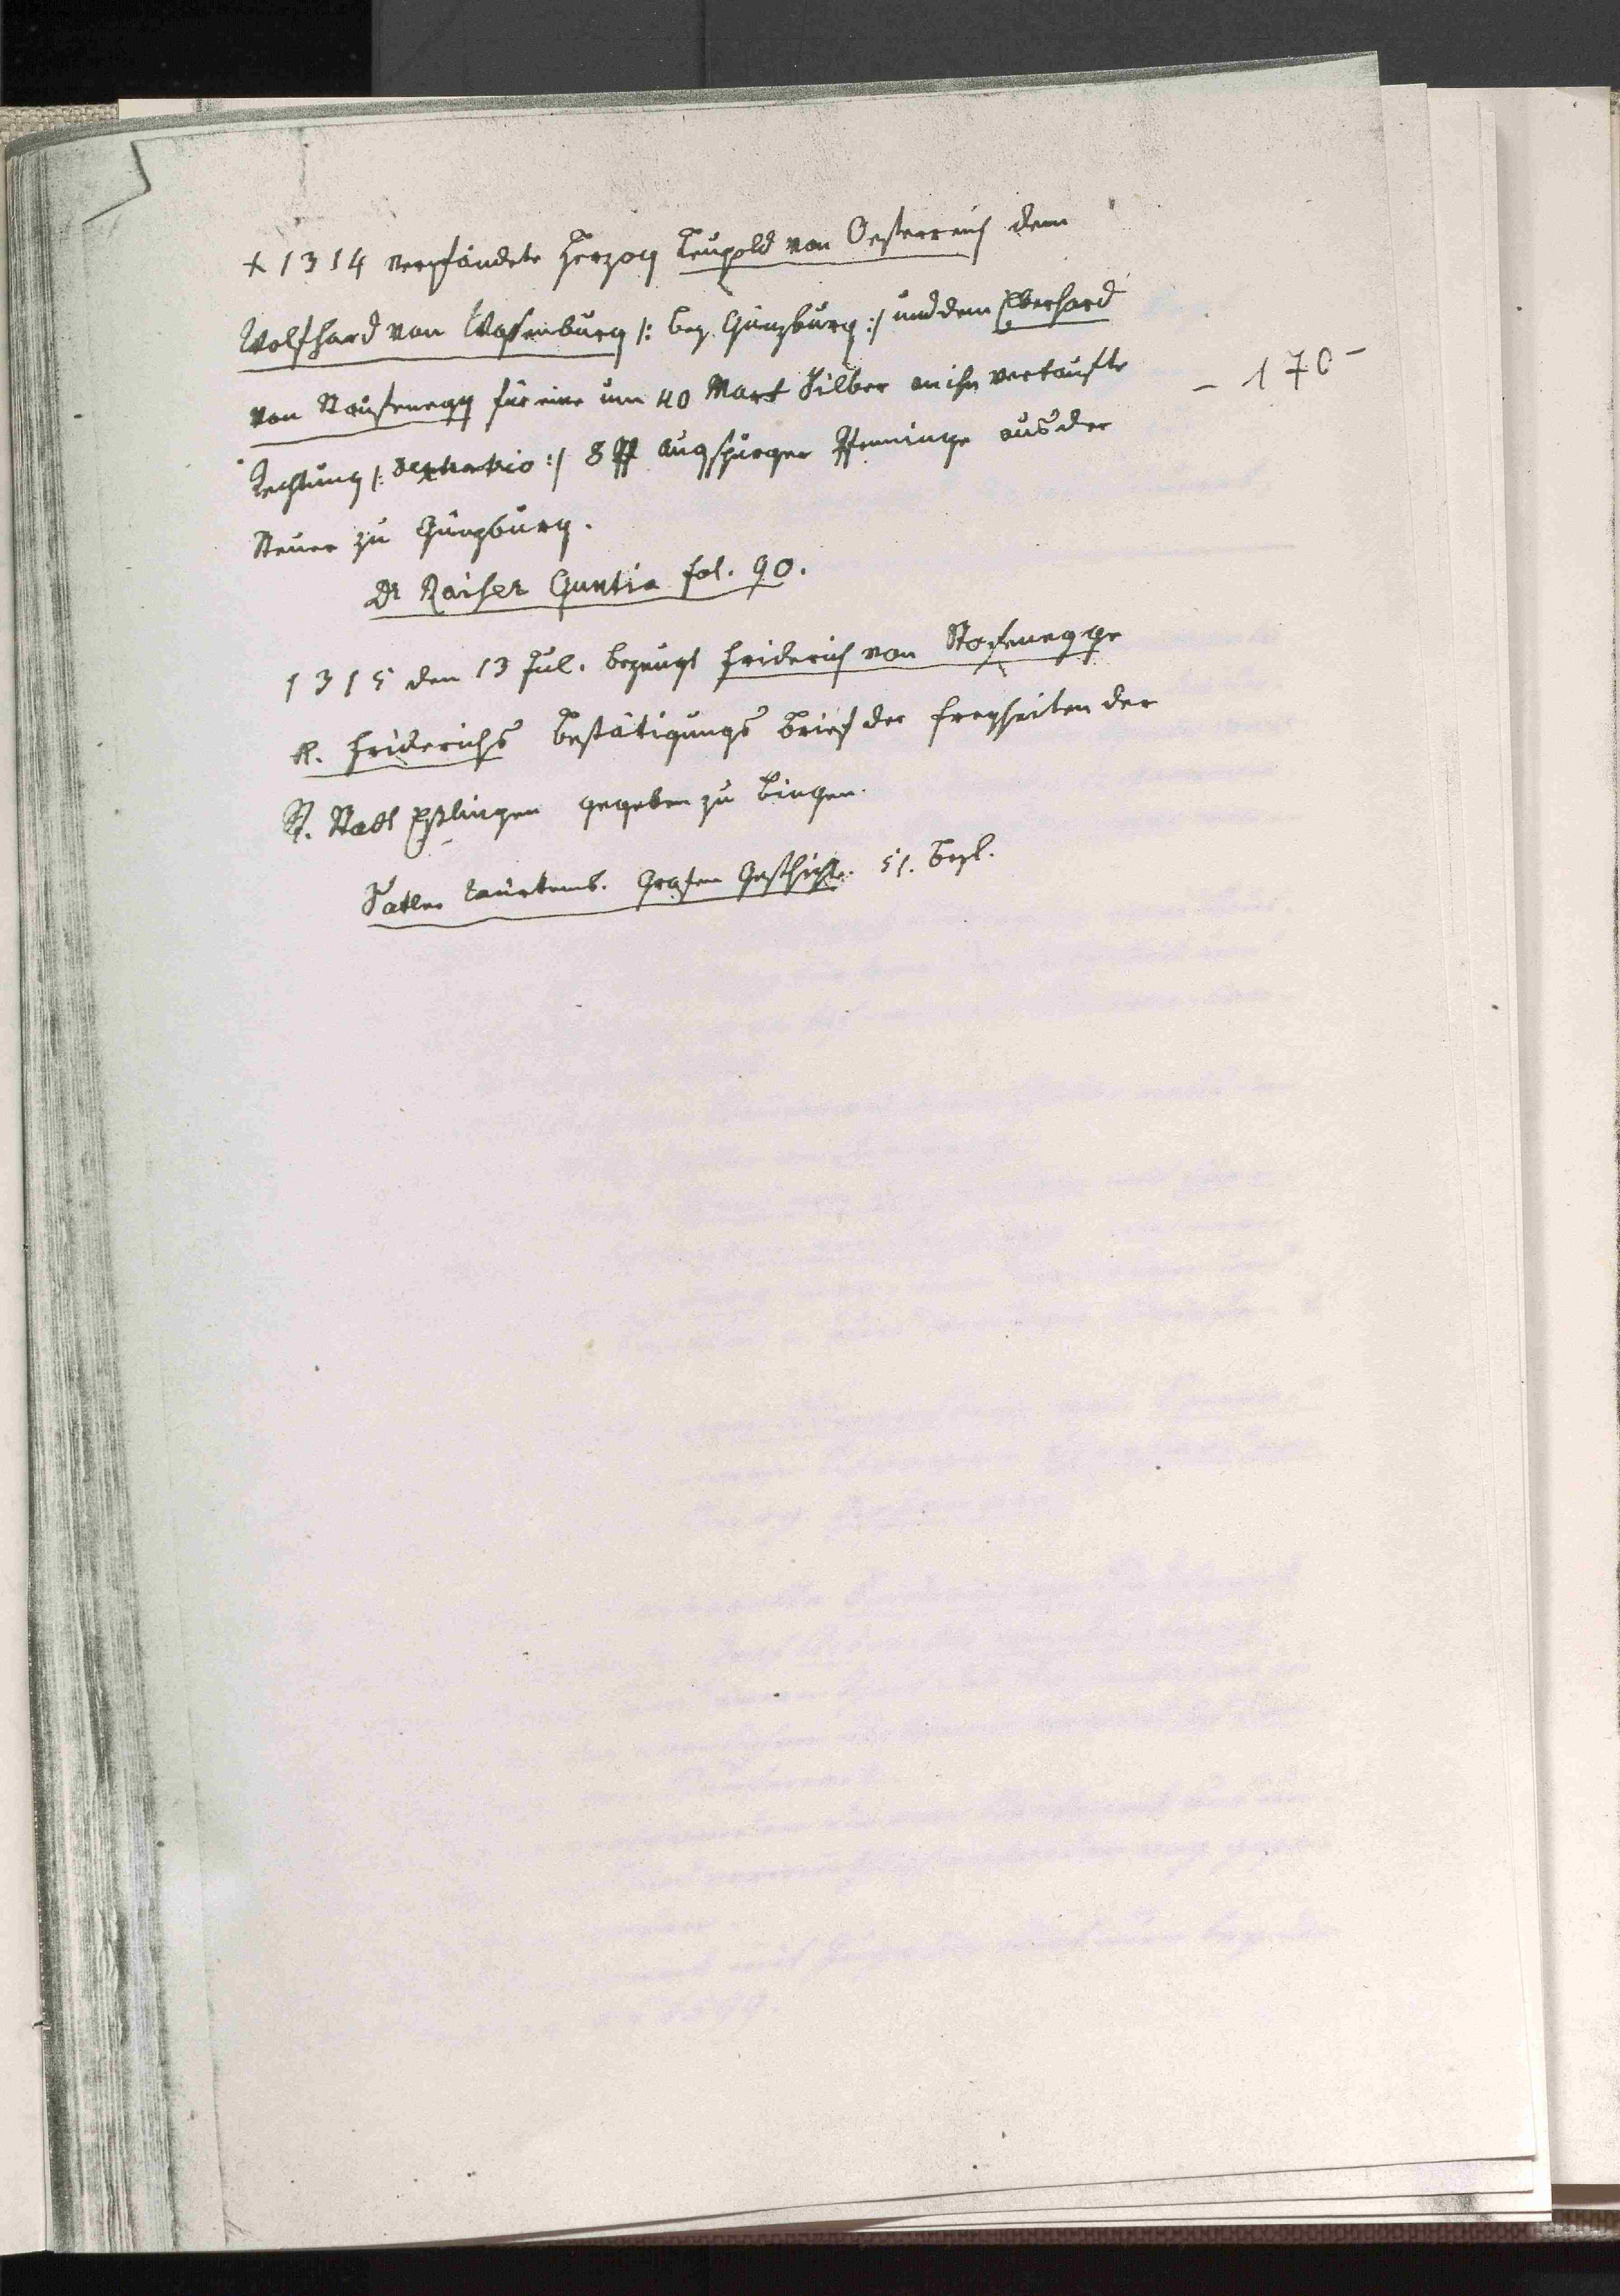 + 1314 verpfändete Herzog Leupold von Oesterreich dem
Wolfhard von Wasenburg /: bey Günzburg :/ und dem Eberhard
von Staufenegg für eine um 40 Mark Silber an ihn verkaufte
- 170 -
8 ℔ Augspurger Pfenninge aus der
Steuer zu Günzburg.
Dr Raiser Guntia fol. 90.
1315 den 13 Jul. bezeugt Friderich von Stofenegge
K. Friderichs Bestätigungs Brief der Freyheiten der
R. Stadt Eßlingen gegeben zu Bingen.
Satler Würtemb. Grafen Geschichte. 51. Beyl.